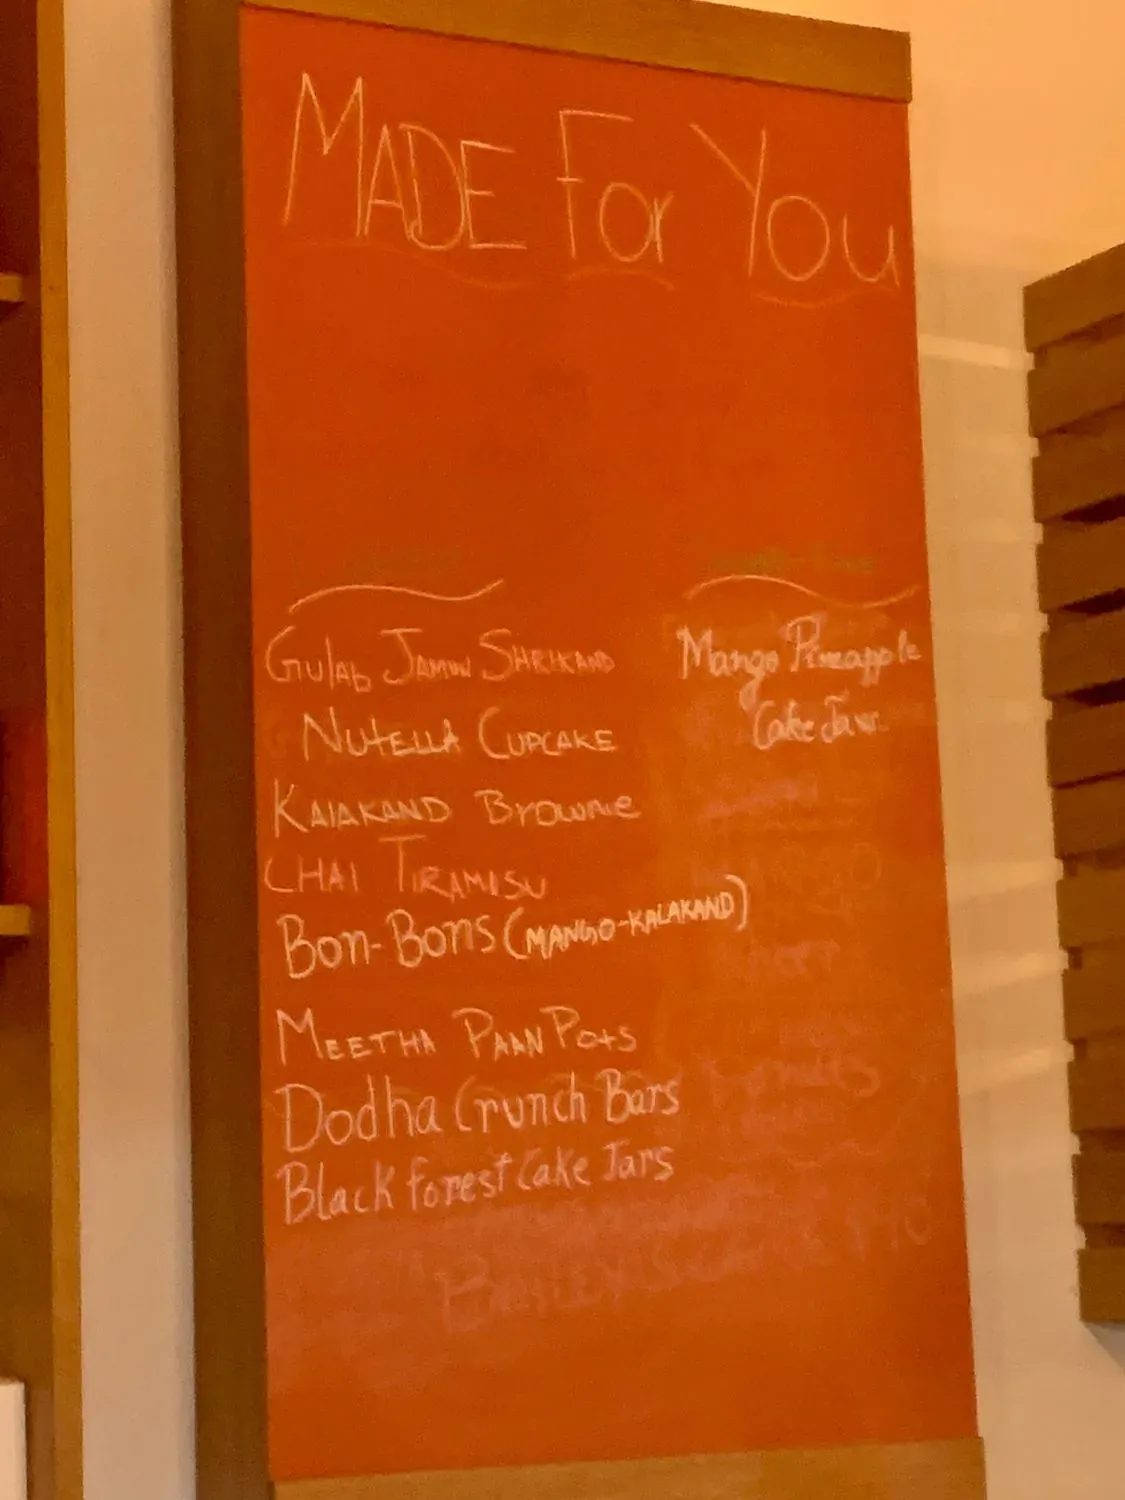 MADE For You
Gulab Jamun Shrikand
Nutella Cupcake
Kalakand Brownie
Chai Tiramisu
Bon-Bons (Mango-Kalakand)
Meetha Paan Pots
Dodha Crunch Bars
Black forest Cake Jars
Mango Pineapple
Cake Jar